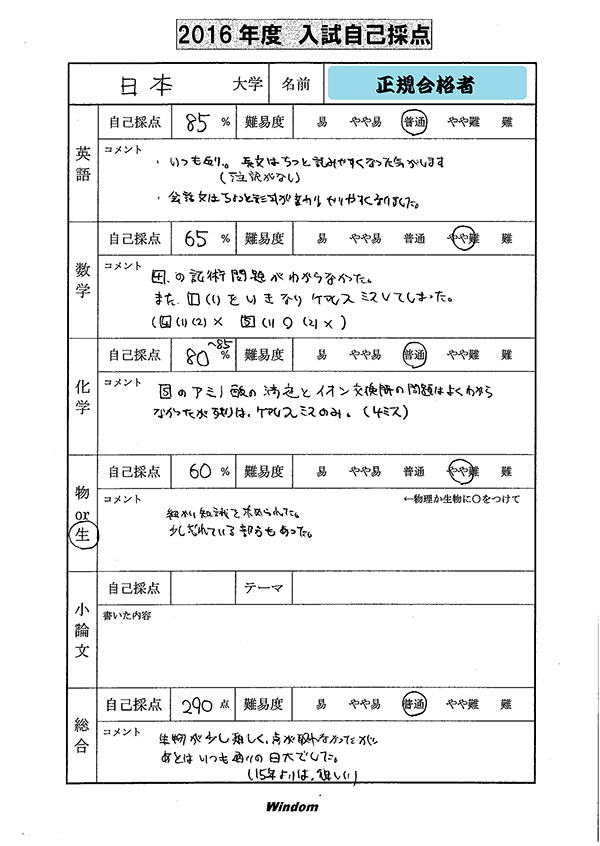 2016年度 入試自己採点
日本 大学 名前 正規合格者
英語
自己採点 85 % 難易度 易 やや易 普通 やや難 難
コメント
・いつも通り。長文はちょっと読みやすくなった気がします
(注訳がなし)
・会話文はちょっと形式が変わりやりやすくなりました。
数学
自己採点 65 % 難易度 易 やや易 普通 やや難 難
コメント
の記術問題がわからなかった。
また、1(1)をいきなりケアレスミスしてしまった。
(4(1)(2)× 5(1)○(2)×)
化学
自己採点 80~85 % 難易度 易 やや易 普通 やや難 難
コメント
5のアミノ酸の滴定とイオン交換膜の問題はよくわから
なかったが残りは、ケアレスミスのみ。(4ミス)
物or生
自己採点 60 % 難易度 易 やや易 普通 やや難 難
コメント ←物理か生物に○をつけて
細かい知識を求められた。
少し忘れている部分もあった。
小論文
自己採点 テーマ
書いた内容
総合
自己採点 290 点 難易度 易 やや易 普通 やや難 難
コメント
生物が少し難しく、点が取れなかったが
あとはいつも通りの日大でした。
(15年よりは、難しい)
Windom